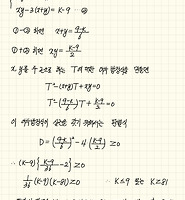 xy-3(x+y)=k-9 ···②
①-② 하면 x+y=\frac{9-k}{6}
①+② 하면 xy=\frac{k-9}{2}
x, y를 두 근으로 하는 T에 대한 이차방정식을 만들면
T²-(x+y)T+xy=0
T²-(\frac{9-k}{6})T+\frac{k-9}{2}=0
이 이차방정식이 실근을 갖기 위해서는 판별식
D=(\frac{9-k}{6})²-4(\frac{k-9}{2})≥0
∴ (k-9){\frac{k-9}{36}-2}≥0
\frac{1}{36}(k-9)(k-81)≥0 ∴ k≤9 또는 k≥81